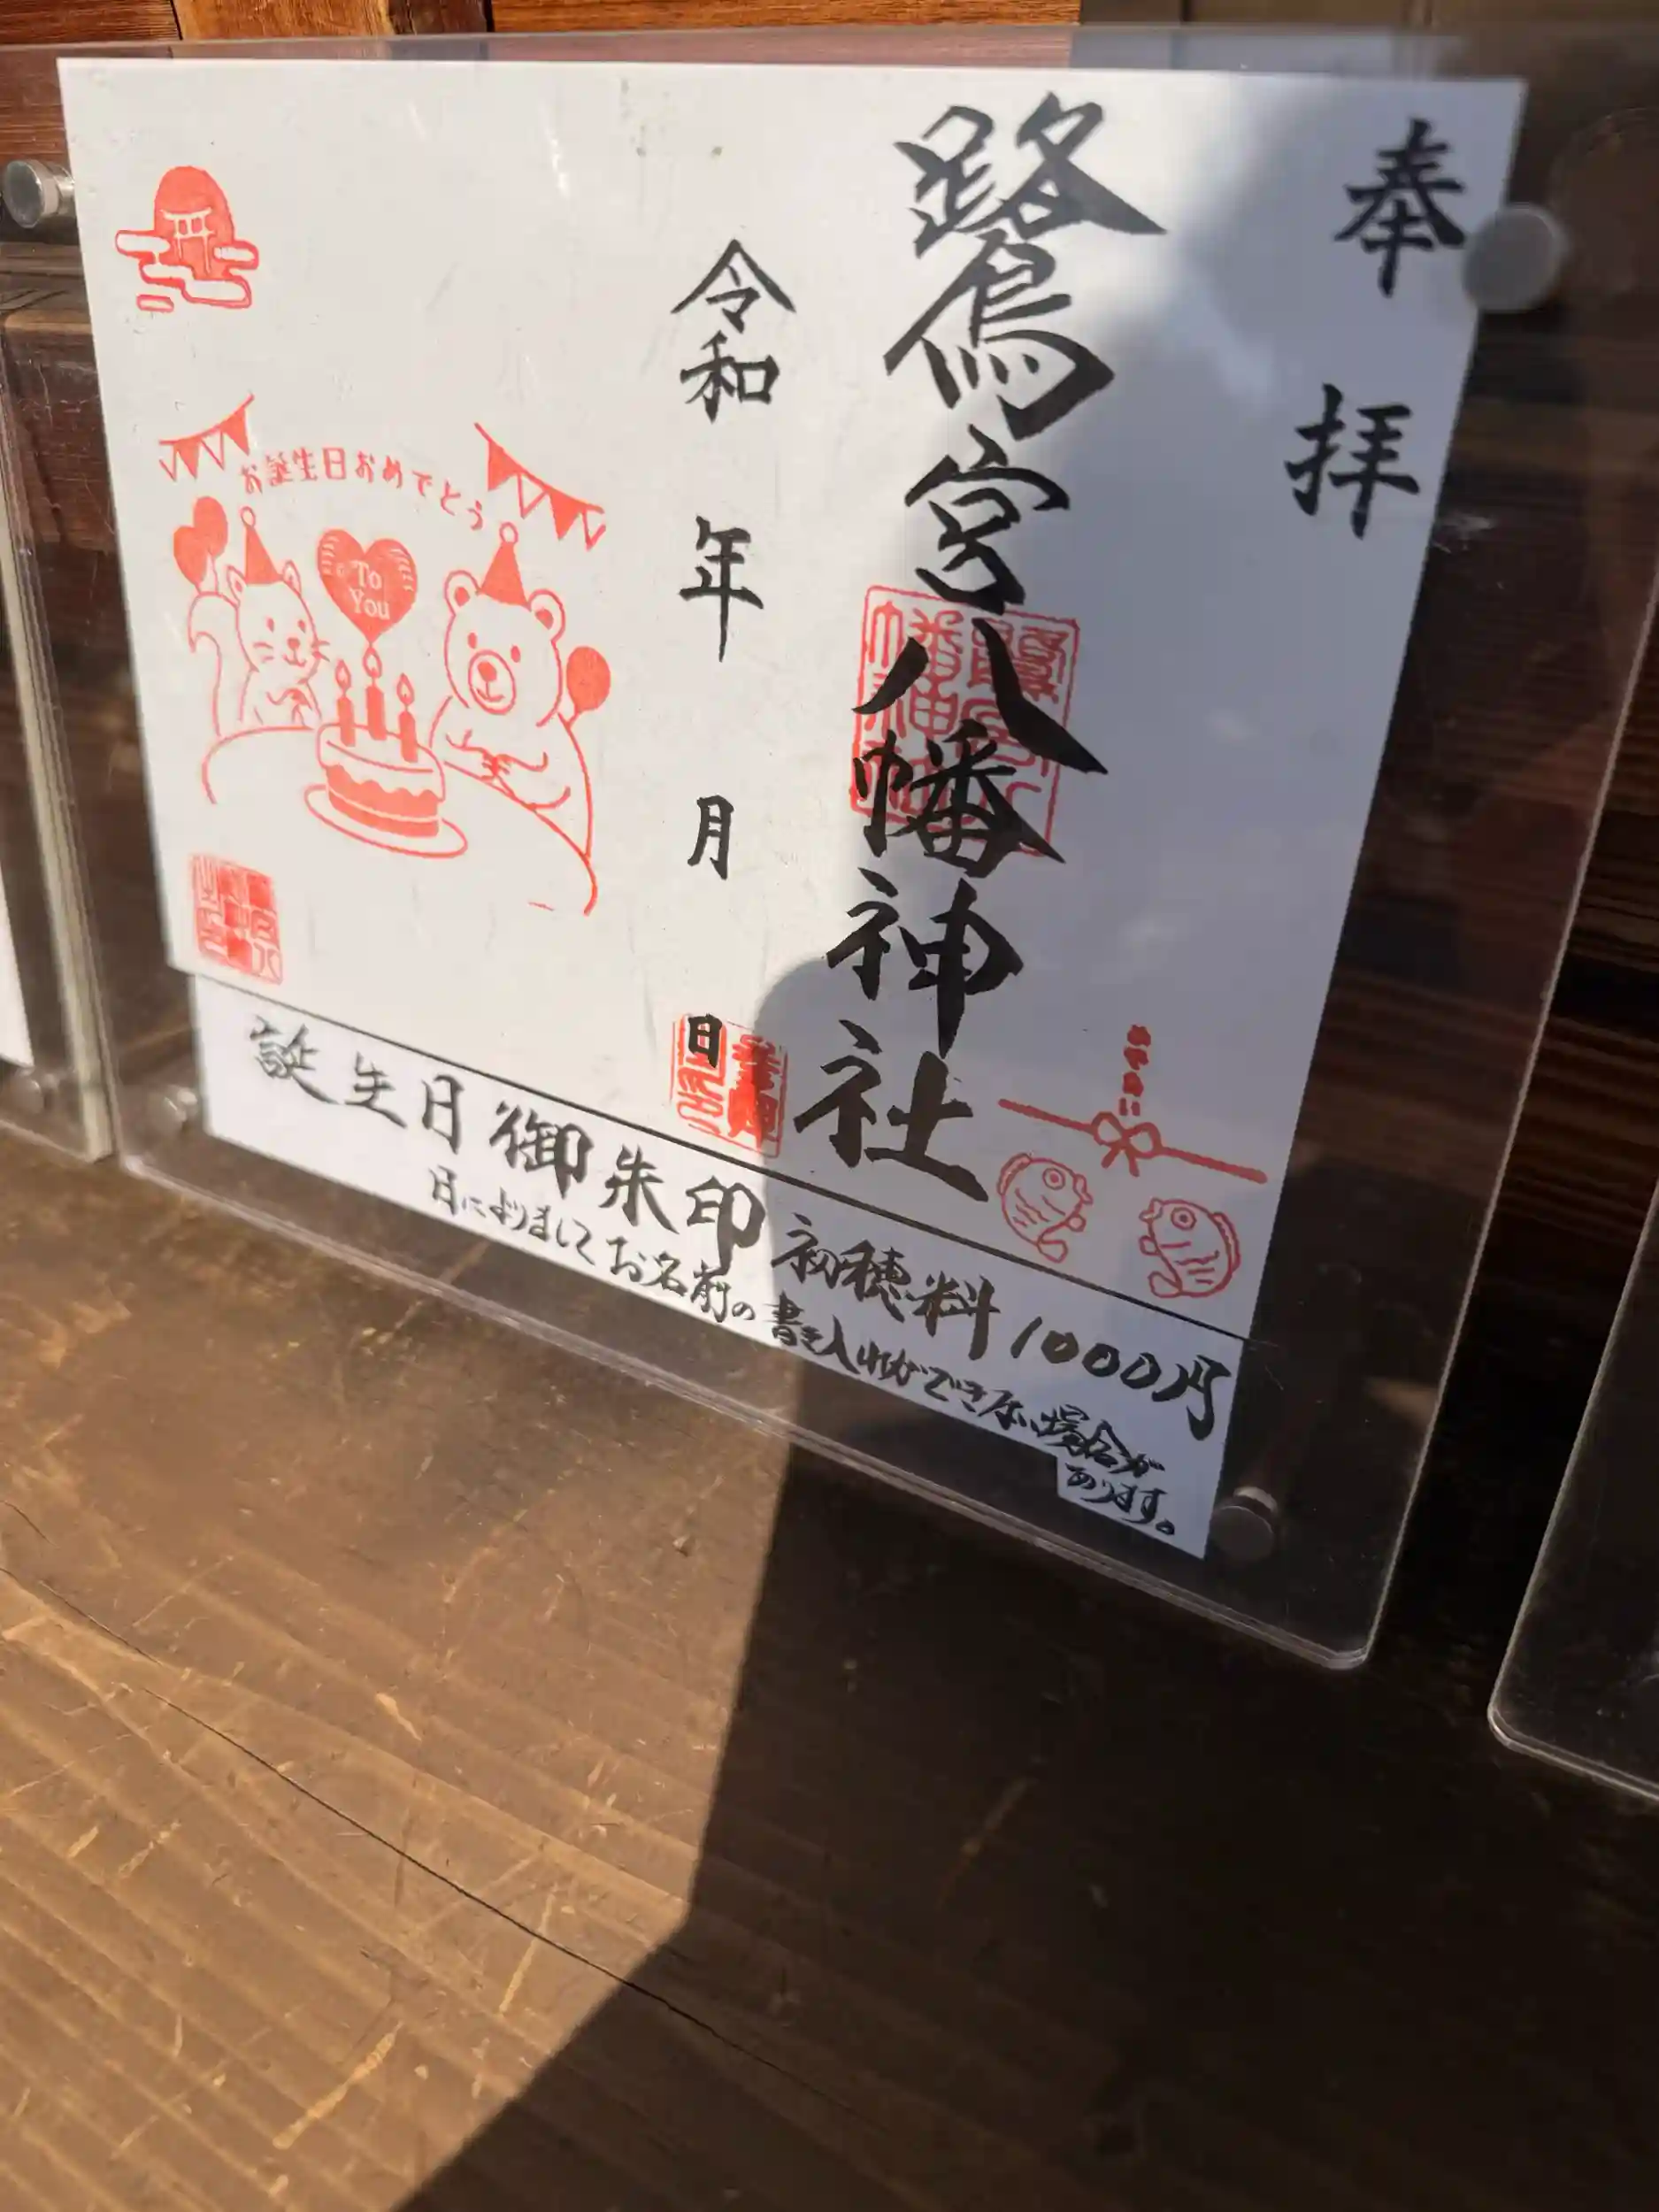 奉拝
鷺宮八幡神社
令和 年 月 日
お誕生日おめでとう
To
You
誕生日御朱印 初穂料 1000円
日によりましてお名前の書き入れができない場合が
あります。